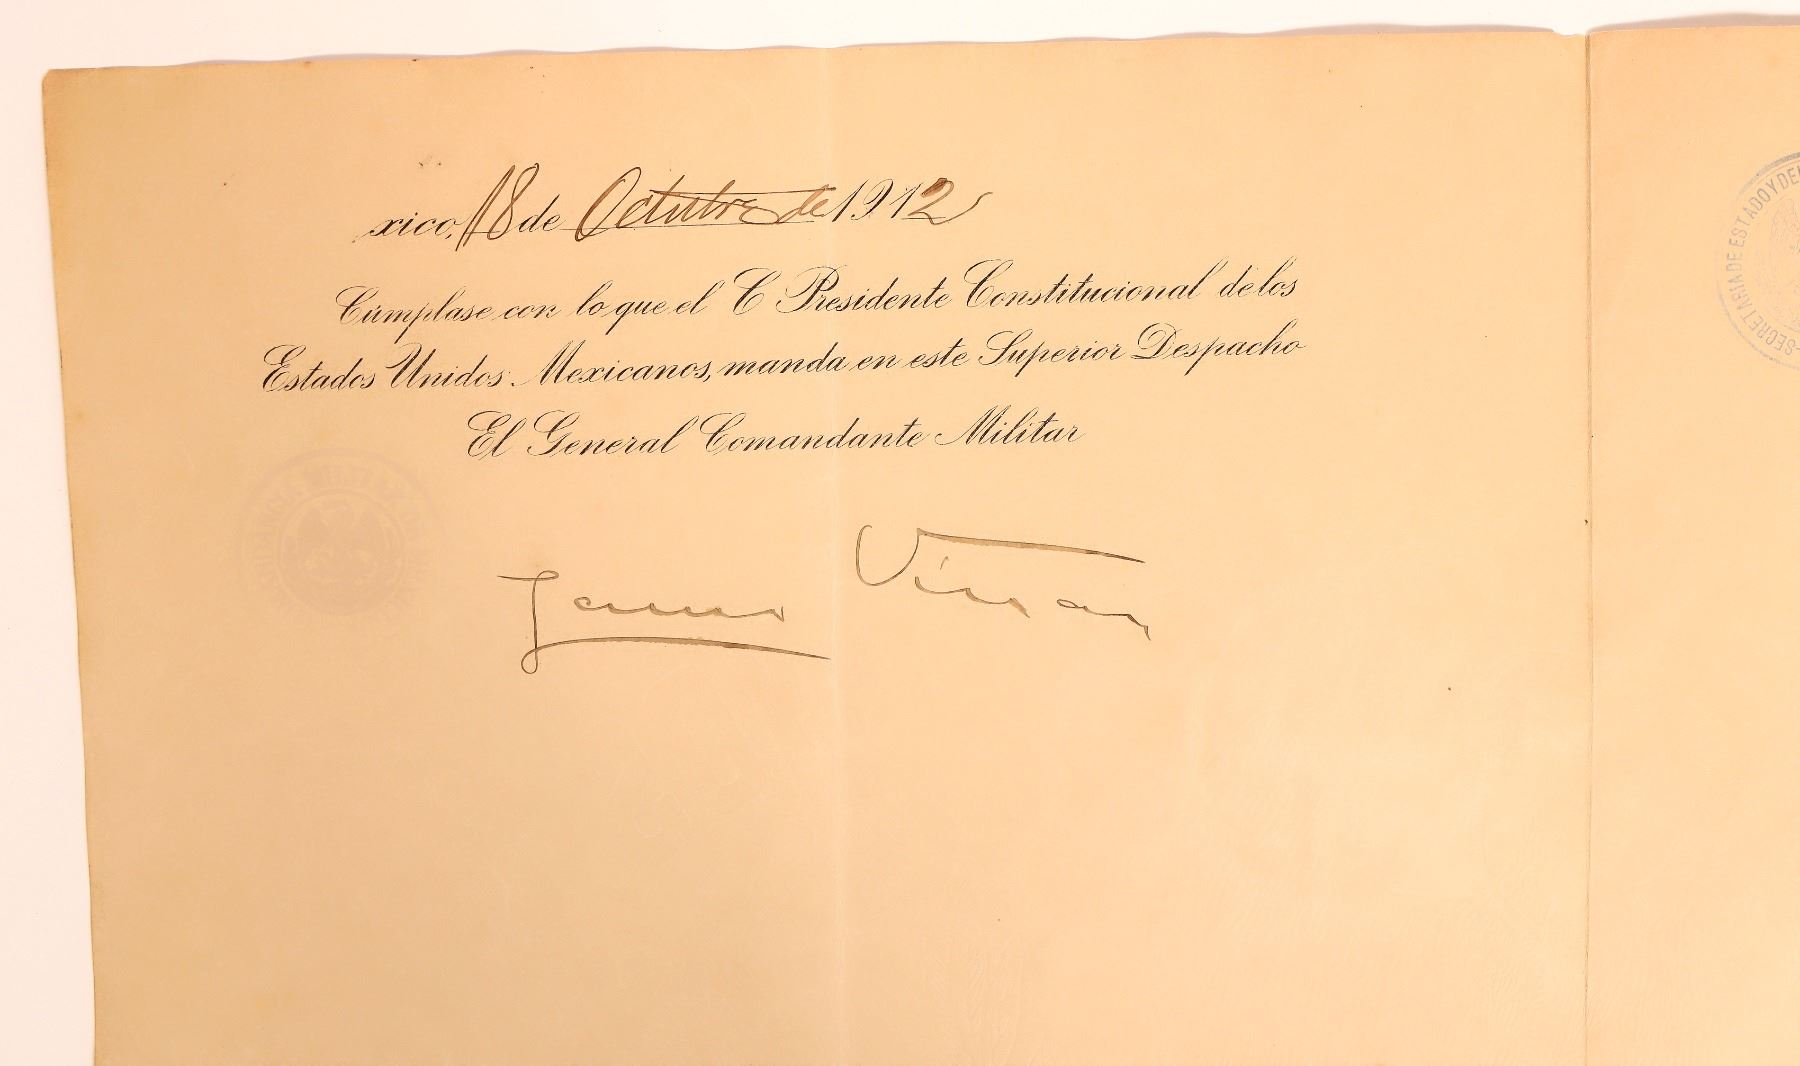 xico, 18 de Octubre de 1912
Cúmplase con lo que el C Presidente Constitucional de los
Estados Unidos Mexicanos, manda en este Superior Despacho
El General Comandante Militar
SECRETARIA DE ESTADO Y DEL